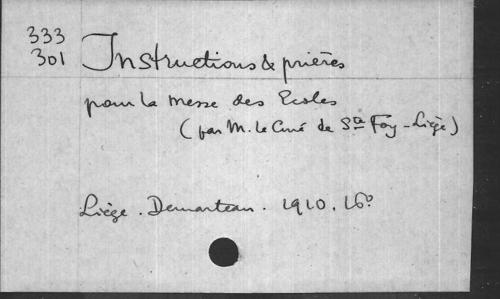 333
301
Instructions & prières
pour la messe des Ecoles
(par M. le Curé de Ste Foy - Liège)
Liège. Demarteau. 1910. 16º